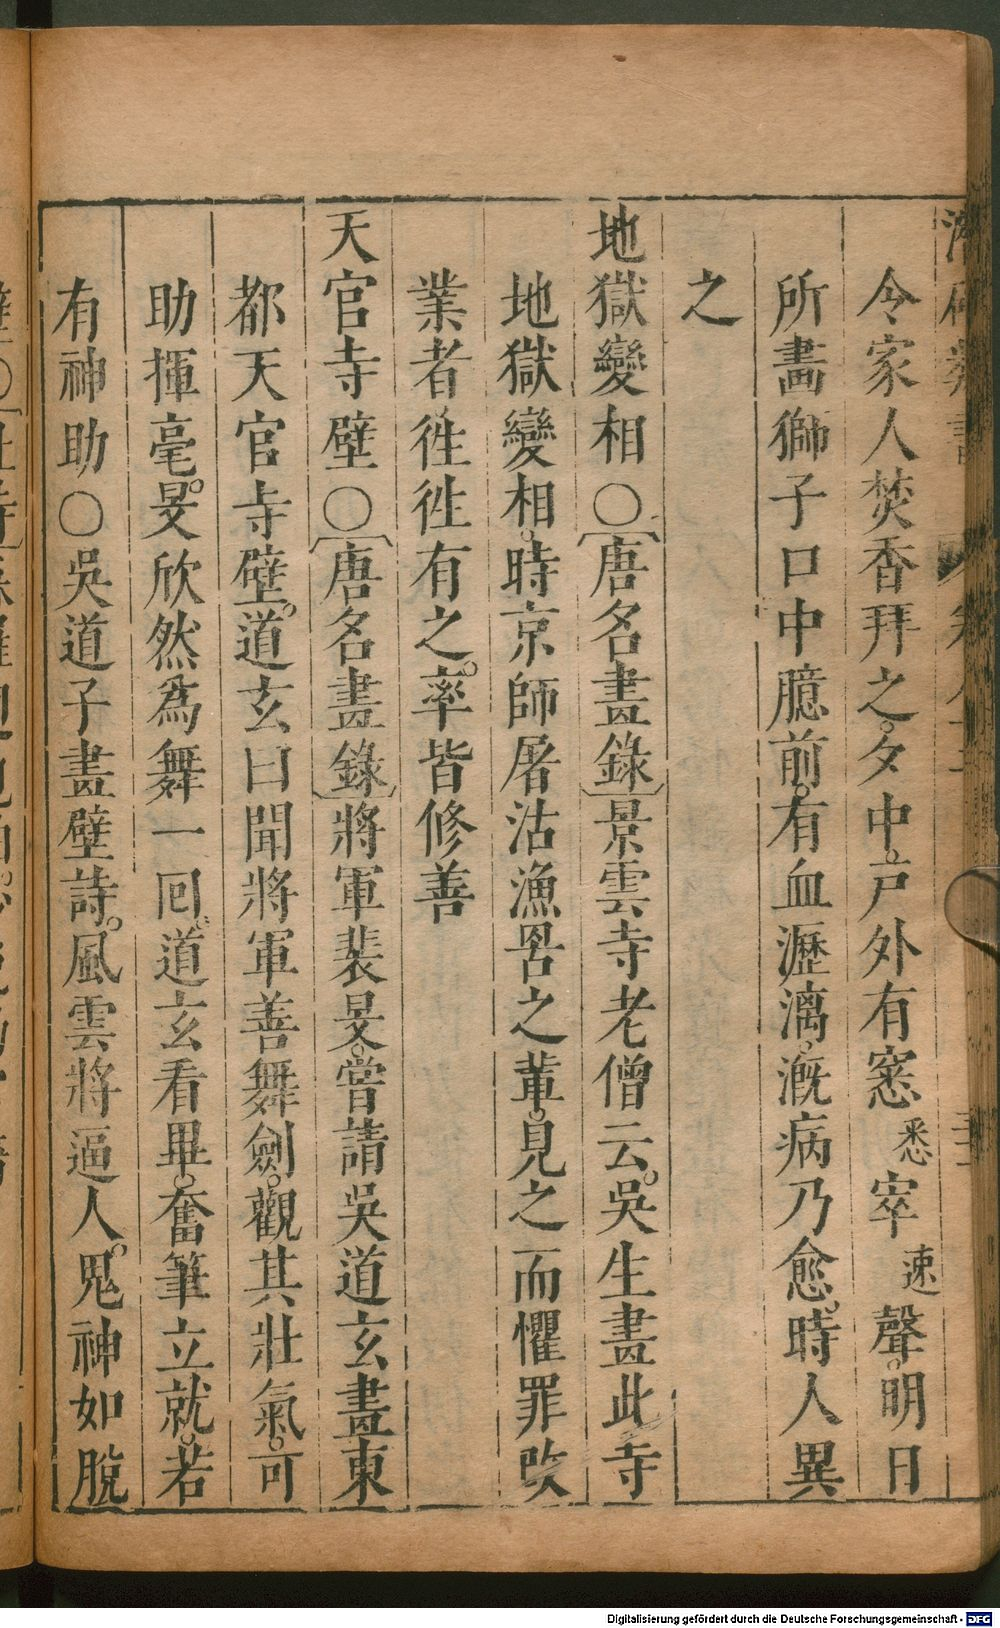 令家人焚香拜之。夕中。戶外有窸悉窣速聲。明日
所畵獅子口中臆前。有血瀝漓。漑病乃愈。時人異
之
地獄變相〇〔唐名畫錄〕景雲寺老僧云。吳生畫此寺
地獄變相。時京師屠沽漁罟之輩。見之而懼罪改
業者徃徃有之。率皆修善
天官寺壁〇〔唐名畫錄〕將軍裴旻。嘗請吳道玄畫東
都天官寺壁。道玄曰聞將軍善舞劍。觀其壯氣。可
助揮毫。旻欣然爲舞一囘。道玄看畢。奮筆立就。若
有神助〇吳道子畫壁詩。風雲將逼人。鬼神如脫
Digitalisierung gefördert durch die Deutsche Forschungsgemeinschaft - DFG